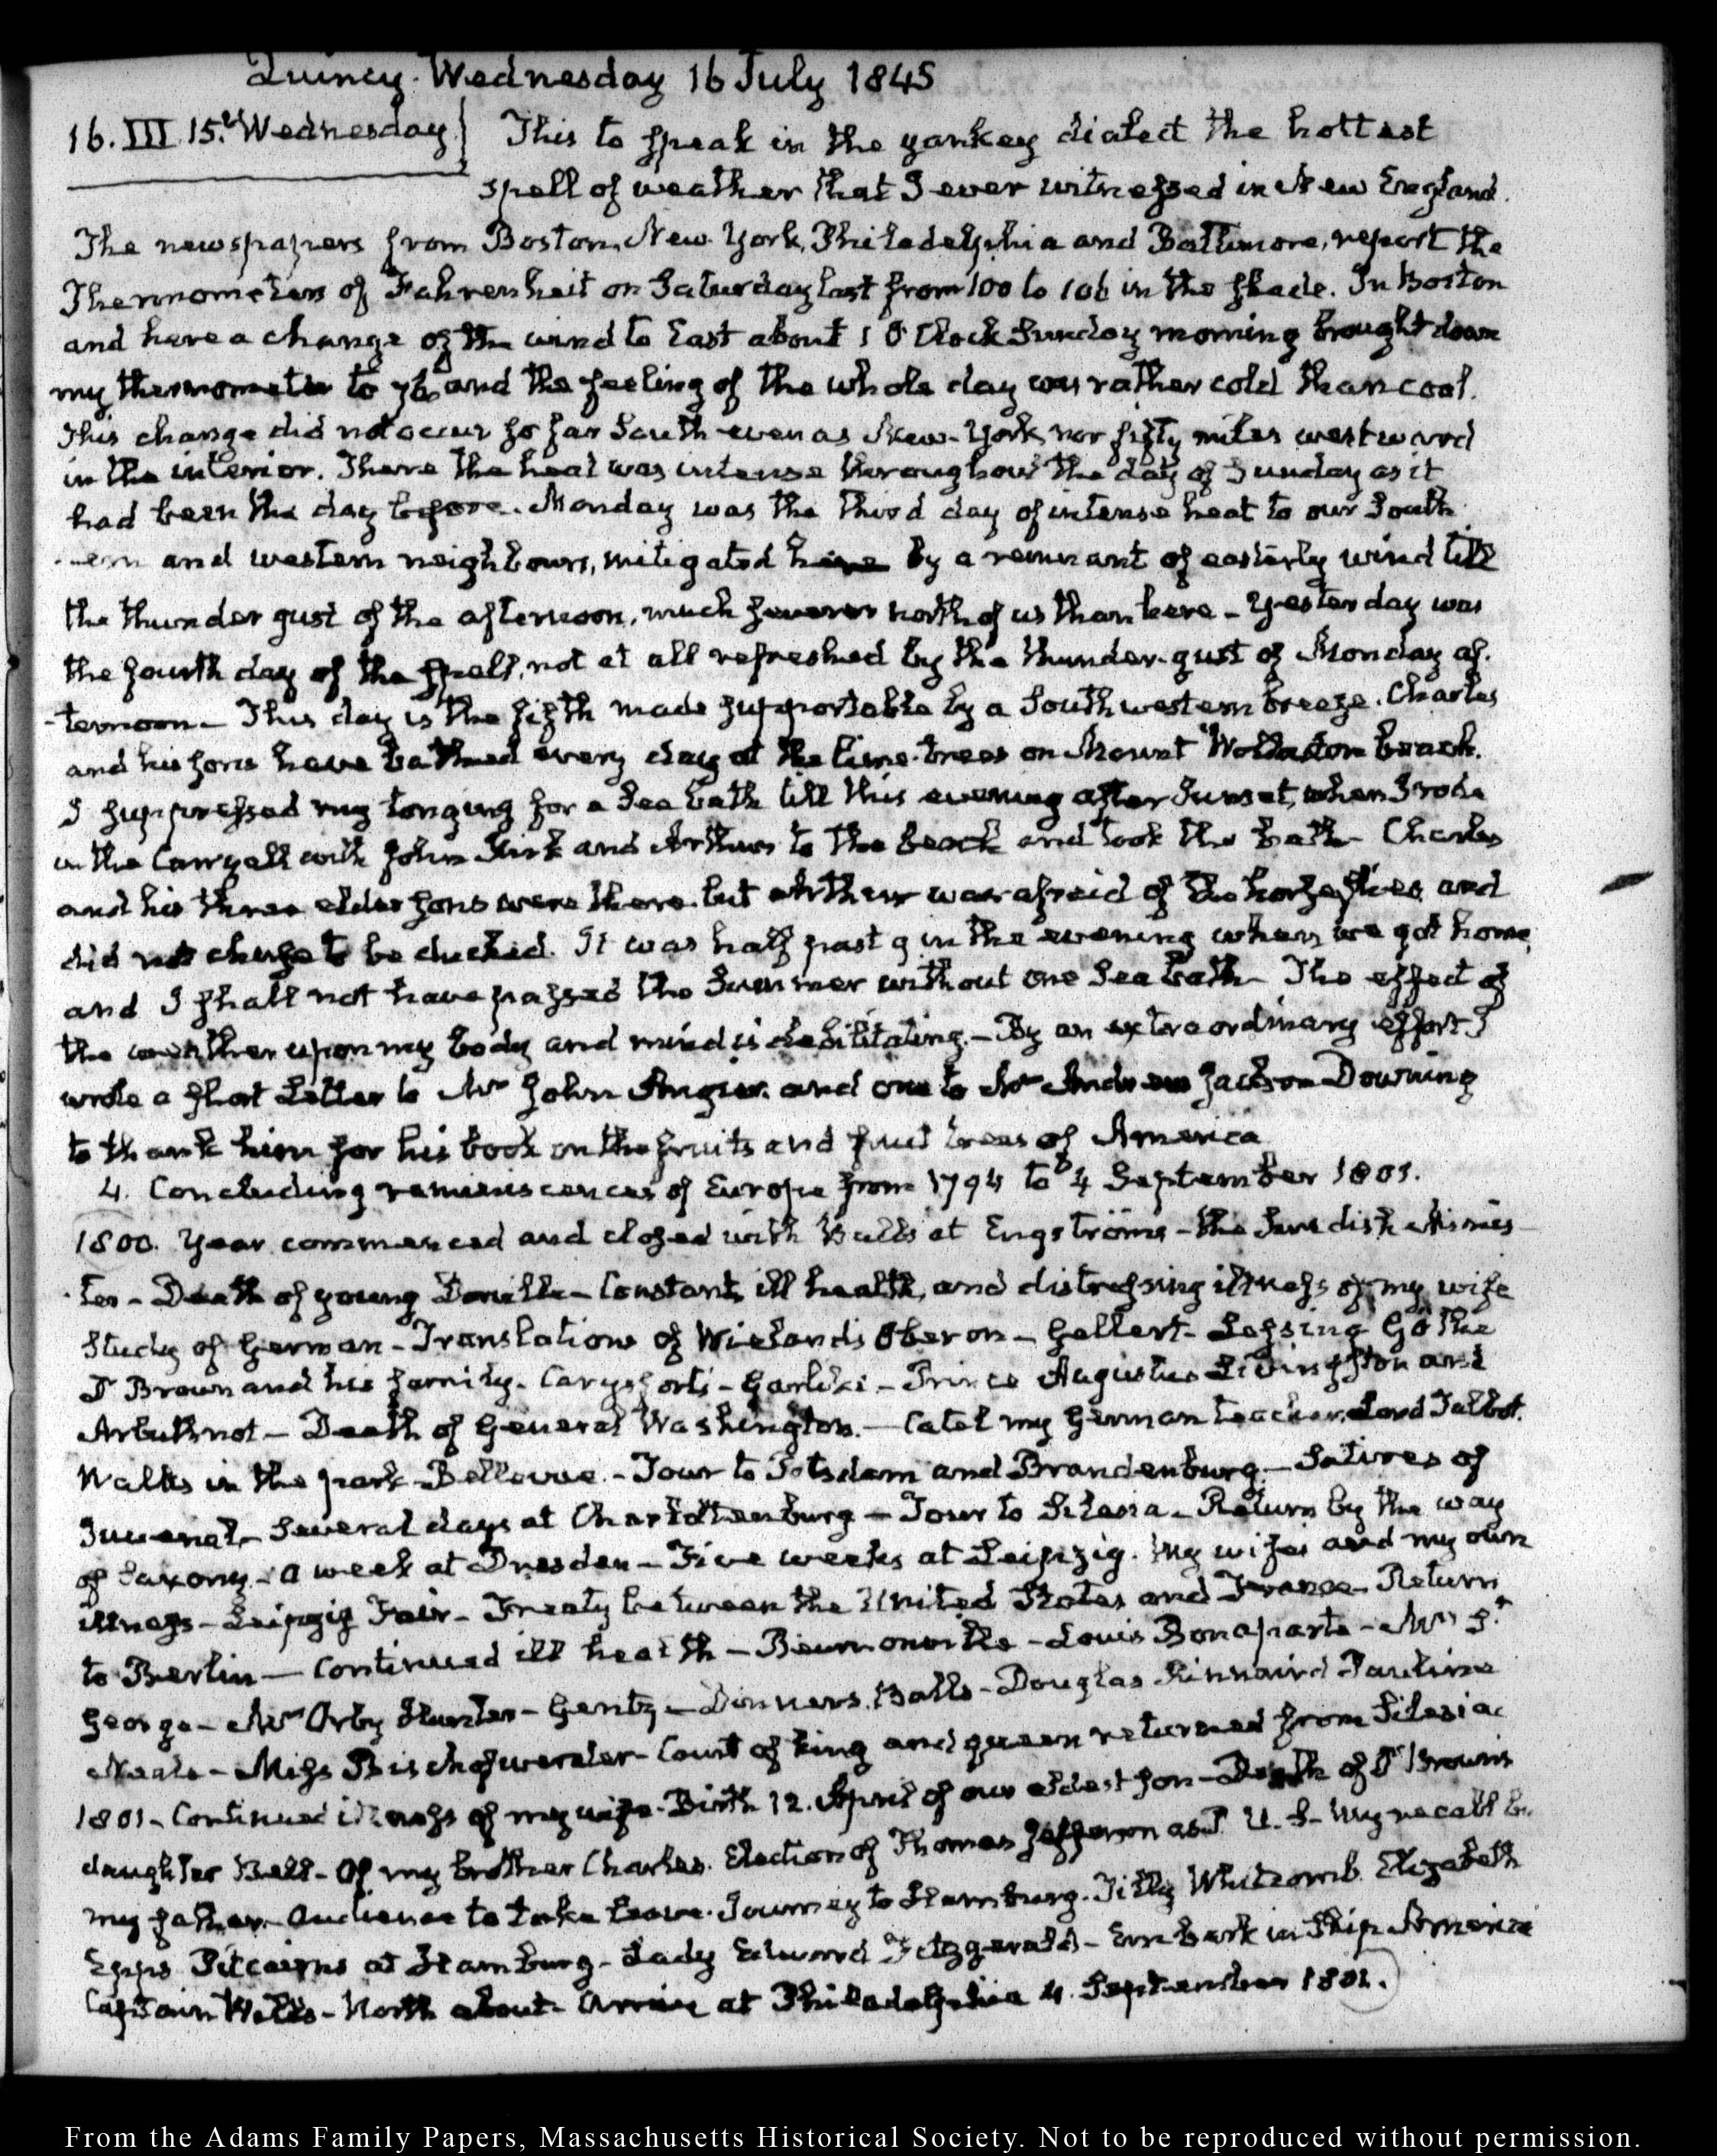 Quincy. Wednesday 16 July 1845
16. III. 15.' Wednesday} This to speak in the yankey dialect the hottest
spell of weather that I ever witnessed in New England.
The newspapers from Boston, New York, Philadelphia and Baltimore, report the
Thermometers of Fahrenheit on Saturday last from 100 to 106 in the shade. In Boston
and here a change of the wind to East about 1 O'Clock Sunday morning brought down
my thermometer to 76, and the feeling of the whole day was rather cold than cool.
This change did not occur so far South even as New-York, nor fifty miles westward
in the interior. There the heat was intense throughout the day of Sunday as it
had been the day before. Monday was the third day of intense heat to our South
-ern and western neighbours, mitigated here by a remnant of easterly wind till
the thunder gust of the afternoon, much severer north of us than here - Yesterday was
the fourth day of the spell, not at all refreshed by the thunder-gust of Monday af-
-ternoon - This day is the fifth made supportable by a Southwestern breeze. Charles
and his sons have bathed every day at the lime-trees on Mount Wollaston beach.
I suppressed my longing for a Sea bath till this evening after Sunset, when I rode
in the Carryall with John Kirk and Arthur to the beach and took the bath - Charles
and his three elder sons were there. but Arthur was afraid of the horse-flies, and
did not chuse to be ducked. It was half past 9 in the evening when we got home,
and I shall not have passed the Summer without one Sea bath - The effect of
the weather upon my body and mind is debilitating. - By an extraordinary effort I
wrote a short Letter to Mr John Angier. and one to Mr Andrew Jackson Downing
to thank him for his book on the fruits and fruit trees of America
4. Concluding reminiscences of Europe from 1794 to 4 September 1801.
1800. Year commenced and closed with Balls at Engströms - the Swedish Minis-
-ter - Death of young - Constant, ill health, and distressing illness of my wife
Study of German - Translations of Wieland's Oberon - Gellert - Lessing Göthe
Dr Brown and his family - Carysforts - Garlike - Prince Augustus Livingston and
Arbuthnot - Death of General Washington. - Catel my German teacher. Lord Talbot.
Walks in the park - Bellevue. - Tour to Potsdam and Brandenburg. - Satires of
Juvenal - Several days at Charlottenburg - Tour to Silesia - Return by the way
of Saxony - a week at Dresden - Five weeks at Leipzig. My wife's and my own
illness - Leipzig Fair - Treaty between the United States and France - Return
to Berlin - Continued ill health - Beurnonville - Louis Bonaparte - Mrs St.
George - Mrs Orby Hunter - Gentz - Dinners. Balls - Douglas Kinnaird Pauline
Neale - Miss Bischofwerder - Court of king and queen returned from Silesia
1801 - Continued illness of my wife - Birth 12. April of our eldest son - Death of Dr Brown's
daughter Bell - Of my brother Charles. Election of Thomas Jefferson as P. U. S - My recall by
my father - Audience to take leave. Journey to Hamburg. Tilly Whitcomb. Elizabeth
Epps Pitcairns at Hamburg - Lady Edward Fitzgerald - Embark in Ship America
Captain Wills - North about - Arrive at Philadelphia 4. September 1801.
From the Adams Family Papers, Massachusetts Historical Society. Not to be reproduced without permission.